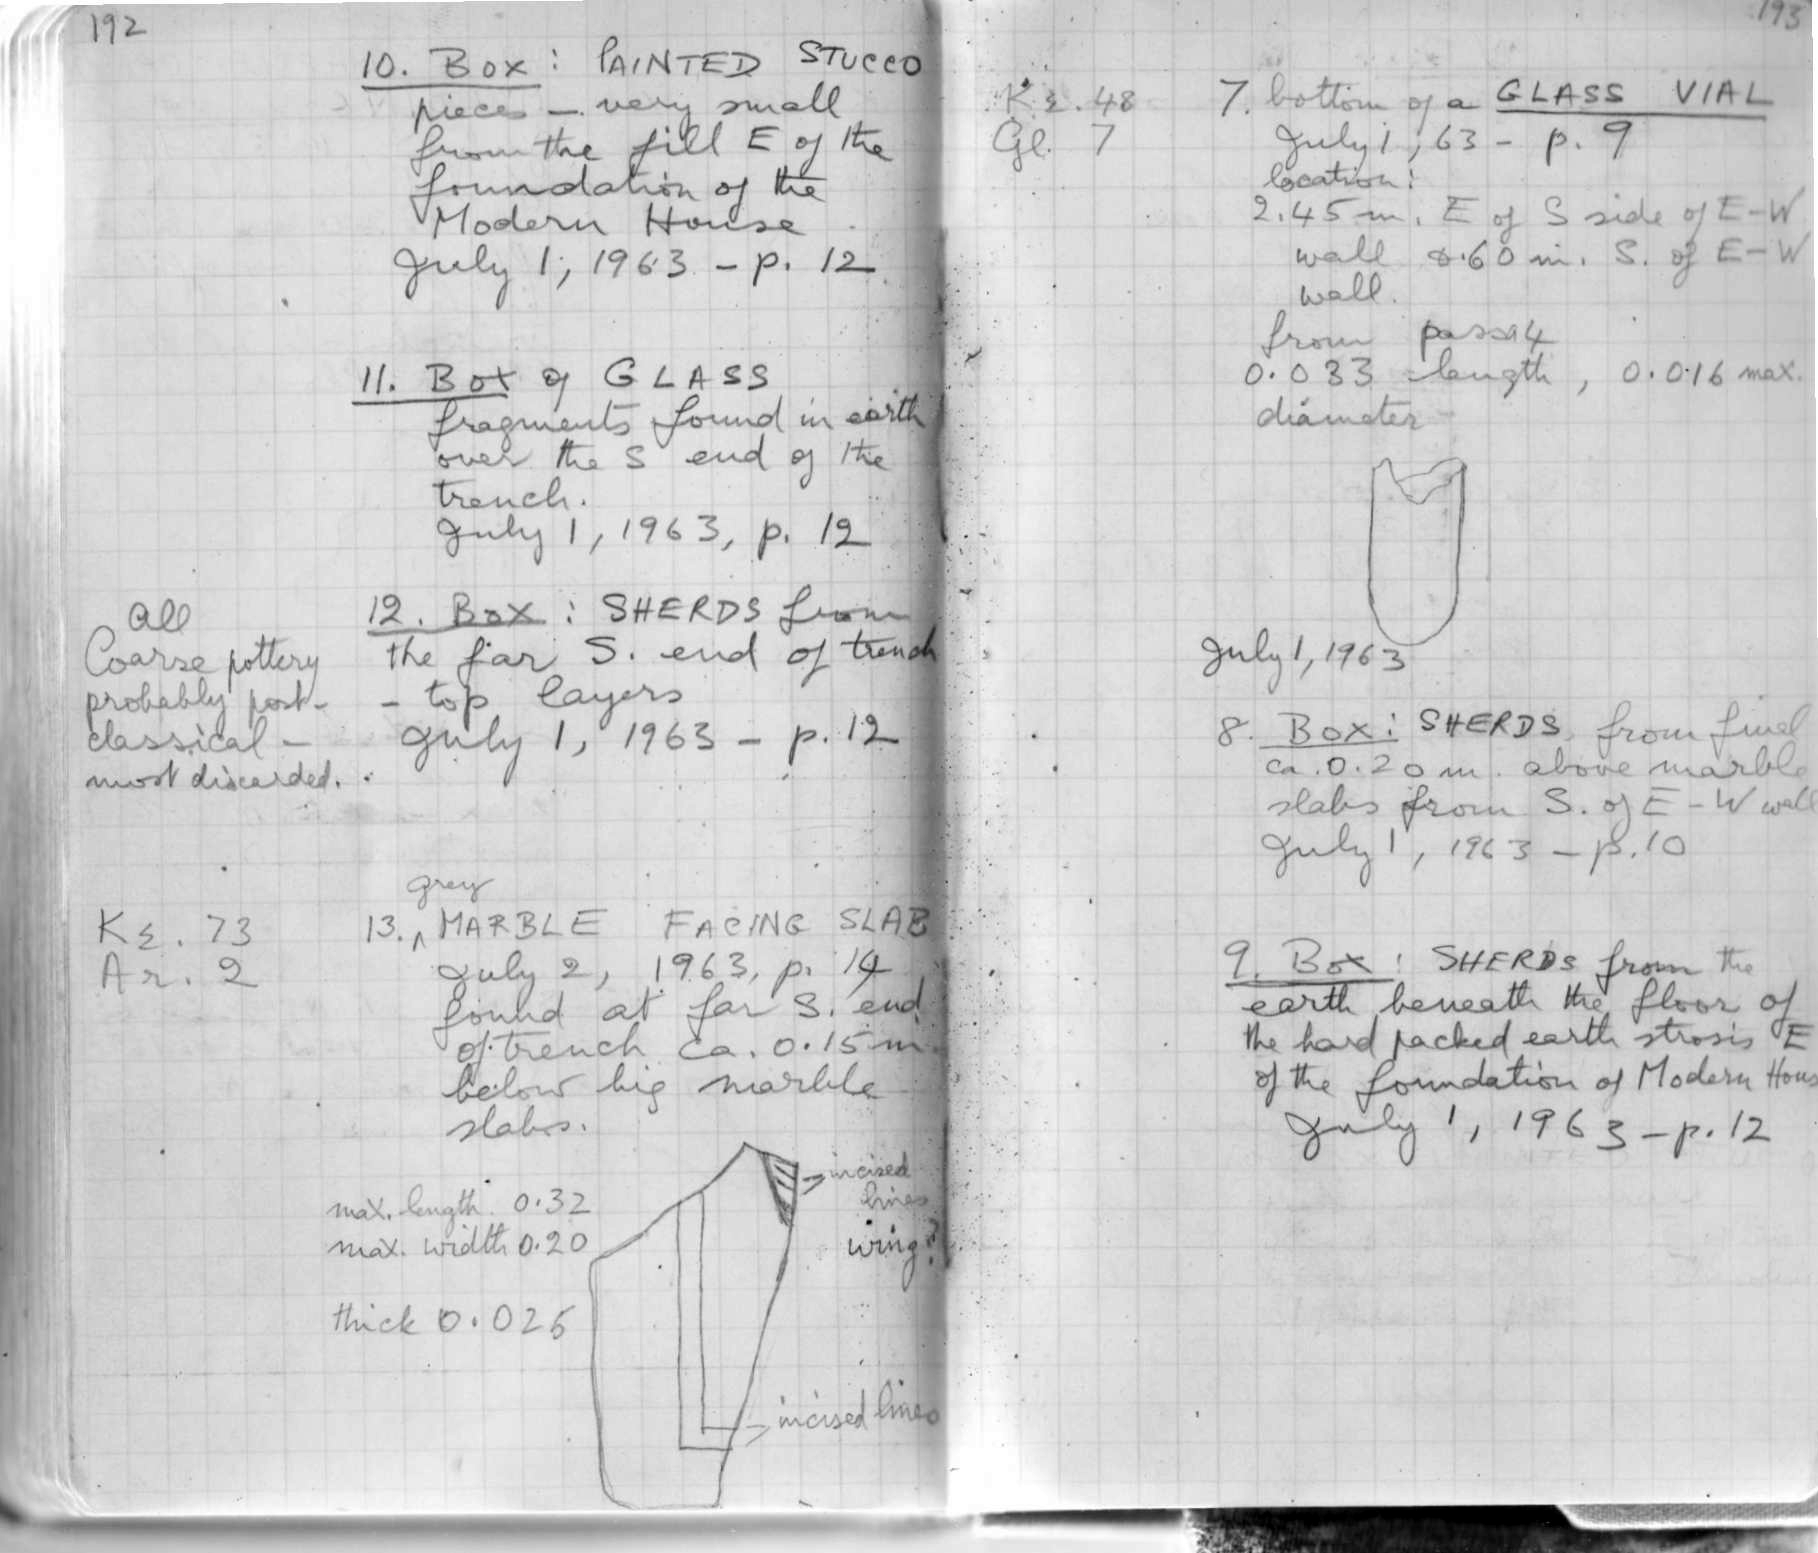 192
10. Box: PAINTED STUCCO
pieces — very small
from the fill E of the
foundation of the
Modern House
July 1, 1963 - p. 12
11. Box of GLASS
fragments found in earth
over the S end of the
trench.
July 1, 1963, p. 12
All
Coarse pottery
probably post-
classical -
most discarded.
12. Box: SHERDS from
the far S. end of trench
- top layers
July 1, 1963 - p. 12
KΣ. 73
Ar. 2
grey
13. ^ MARBLE FACING SLAB
July 2, 1963, p. 14
found at far S. end
of trench ca. 0.15 m
below big marble
slabs.
max. length 0.32
max. width 0.20
thick 0.026
incised
lines
wing?
incised lines
193
KΣ. 48
Gl. 7
7. bottom of a GLASS VIAL
July 1, 63 - p. 9
location:
2.45 m. E of S side of E-W
wall 0.60 m. S. of E-W
wall.
from pass 4
0.033 length, 0.016 max.
diameter
July 1, 1963
8. Box: SHERDS from final
ca. 0.20 m. above marble
slabs from S. of E-W wall
July 1, 1963 - p. 10
9. Box: SHERDS from the
earth beneath the floor of
the hard packed earth strosis E
of the foundation of Modern Hous
July 1, 1963 - p. 12